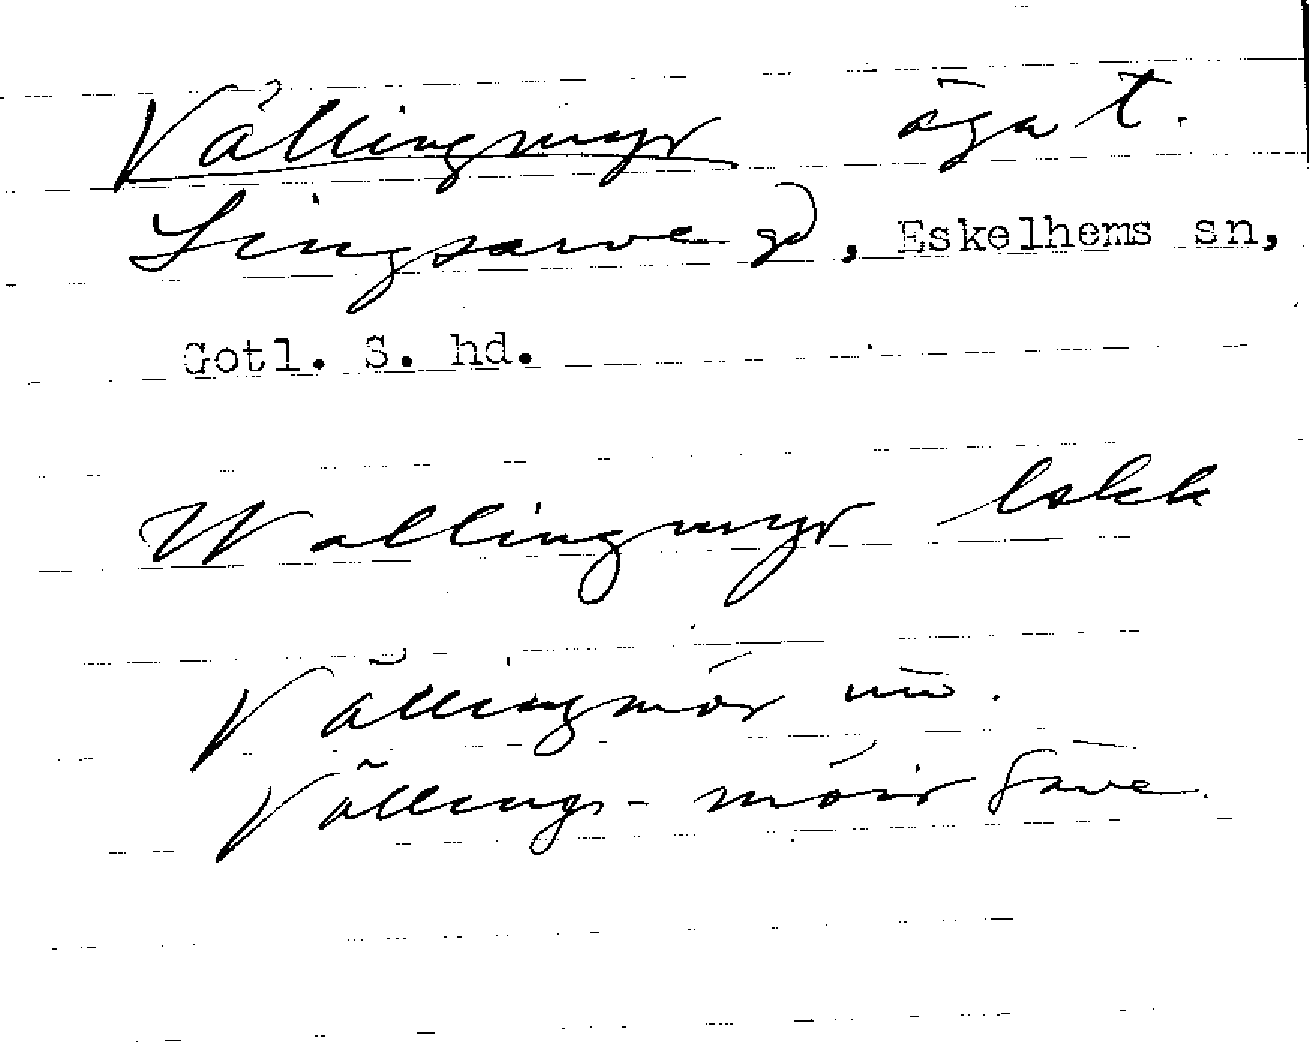 Vällingmyr äga t.
Lingsarve gd, Eskelhems sn,
Gotl. S. hd.
Wallingmyr lskk
Vällingmör
Vällings- móir Säve.